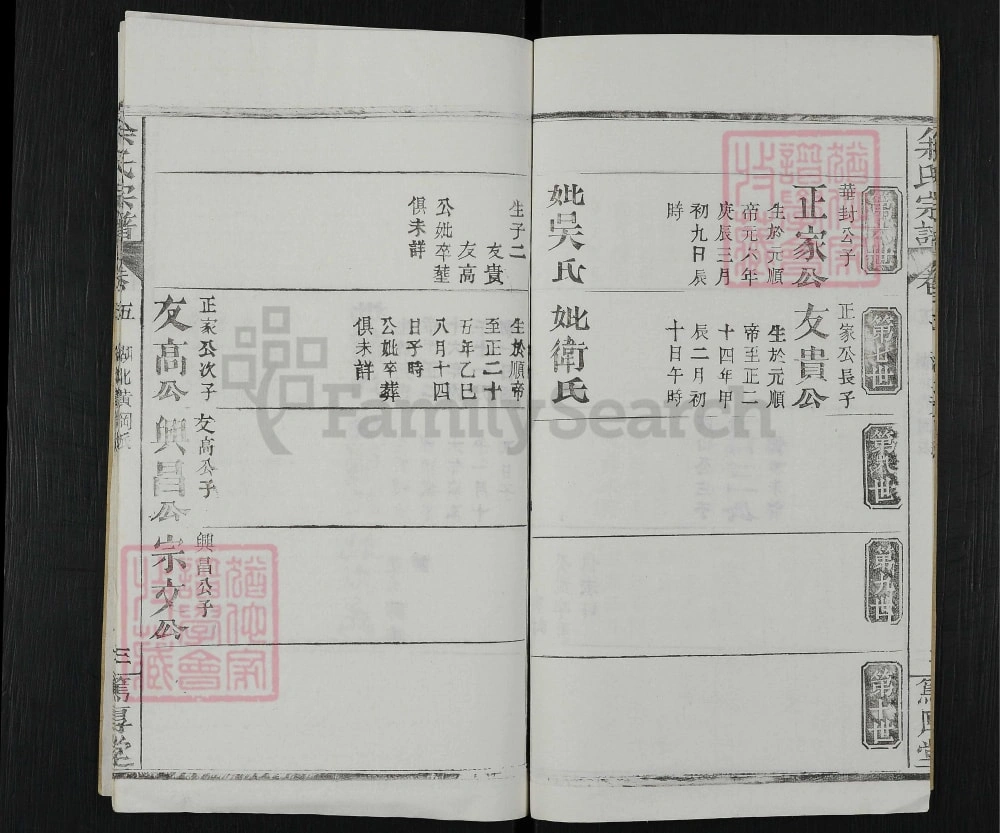 第六世
華封公子
正家公
生於元順
帝元六年
庚辰三月
初九日辰
時
妣吳氏
生子二
友貴
友高
公妣卒塟
俱未詳
第七世
正家公長子
友貴公
生於元順
帝至正二
十四年甲
辰二月初
十日午時
妣衛氏
生於順帝
至正二十
五年乙巳
八月十四
日子時
公妣卒葬
俱未詳
正家公次子
友高公
第八世
友高公子
興昌公
第九世
興昌公子
宗文公
第十世
余氏宗譜
卷五
湖北黃岡
三
篤厚堂
FamilySearch